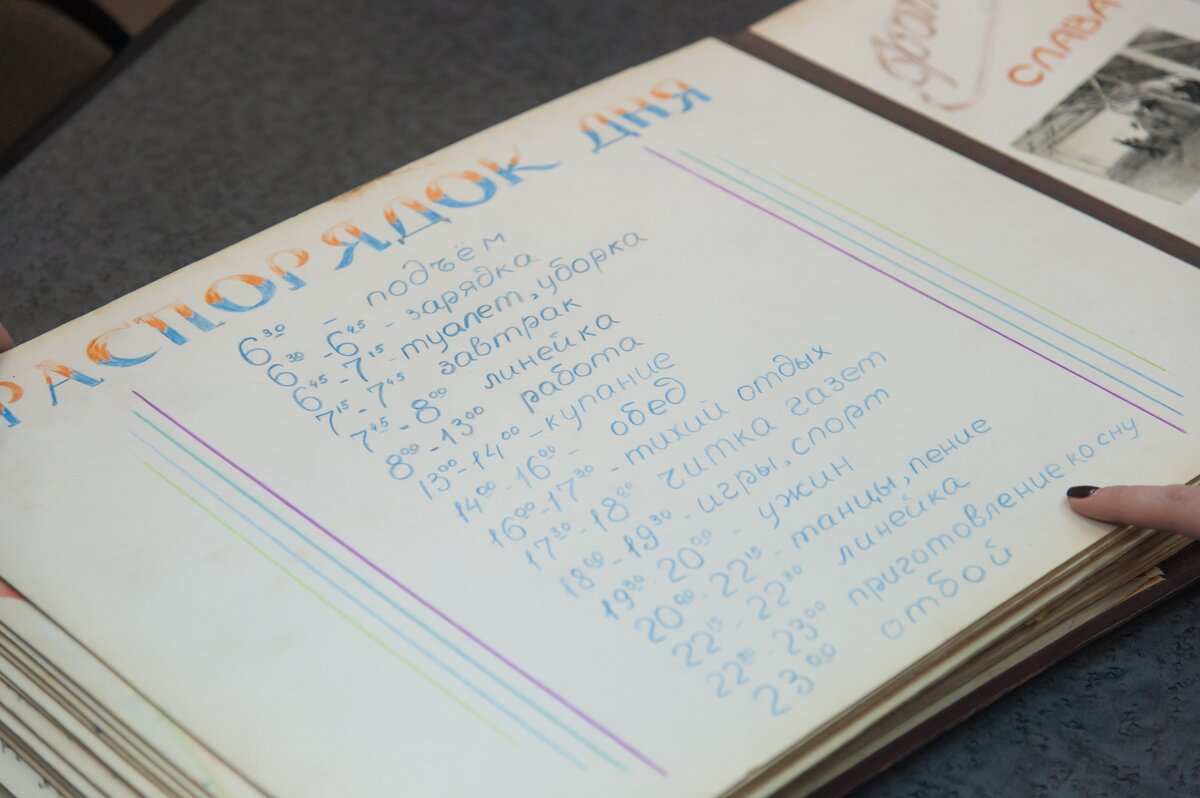 РАСПОРЯДОК ДНЯ
6³⁰ – подъём
6³⁰ - 6⁴⁵ - зарядка
6⁴⁵ - 7¹⁵ - туалет, уборка
7¹⁵ - 7⁴⁵ завтрак
7⁴⁵ - 8⁰⁰ линейка
8⁰⁰ - 13⁰⁰ работа
13⁰⁰ - 14⁰⁰ – купание
14⁰⁰ - 16⁰⁰ – обед
16⁰⁰ - 17³⁰ - тихий отдых
17³⁰ - 18⁰⁰ читка газет
18⁰⁰ - 19³⁰ - игры, спорт
19³⁰ - 20⁰⁰ - ужин
20⁰⁰ - 22¹⁵ - танцы, пение
22¹⁵ - 22³⁰ линейка
22³⁰ - 23⁰⁰ приготовление ко сну
23⁰⁰ отбой
СЛАВА